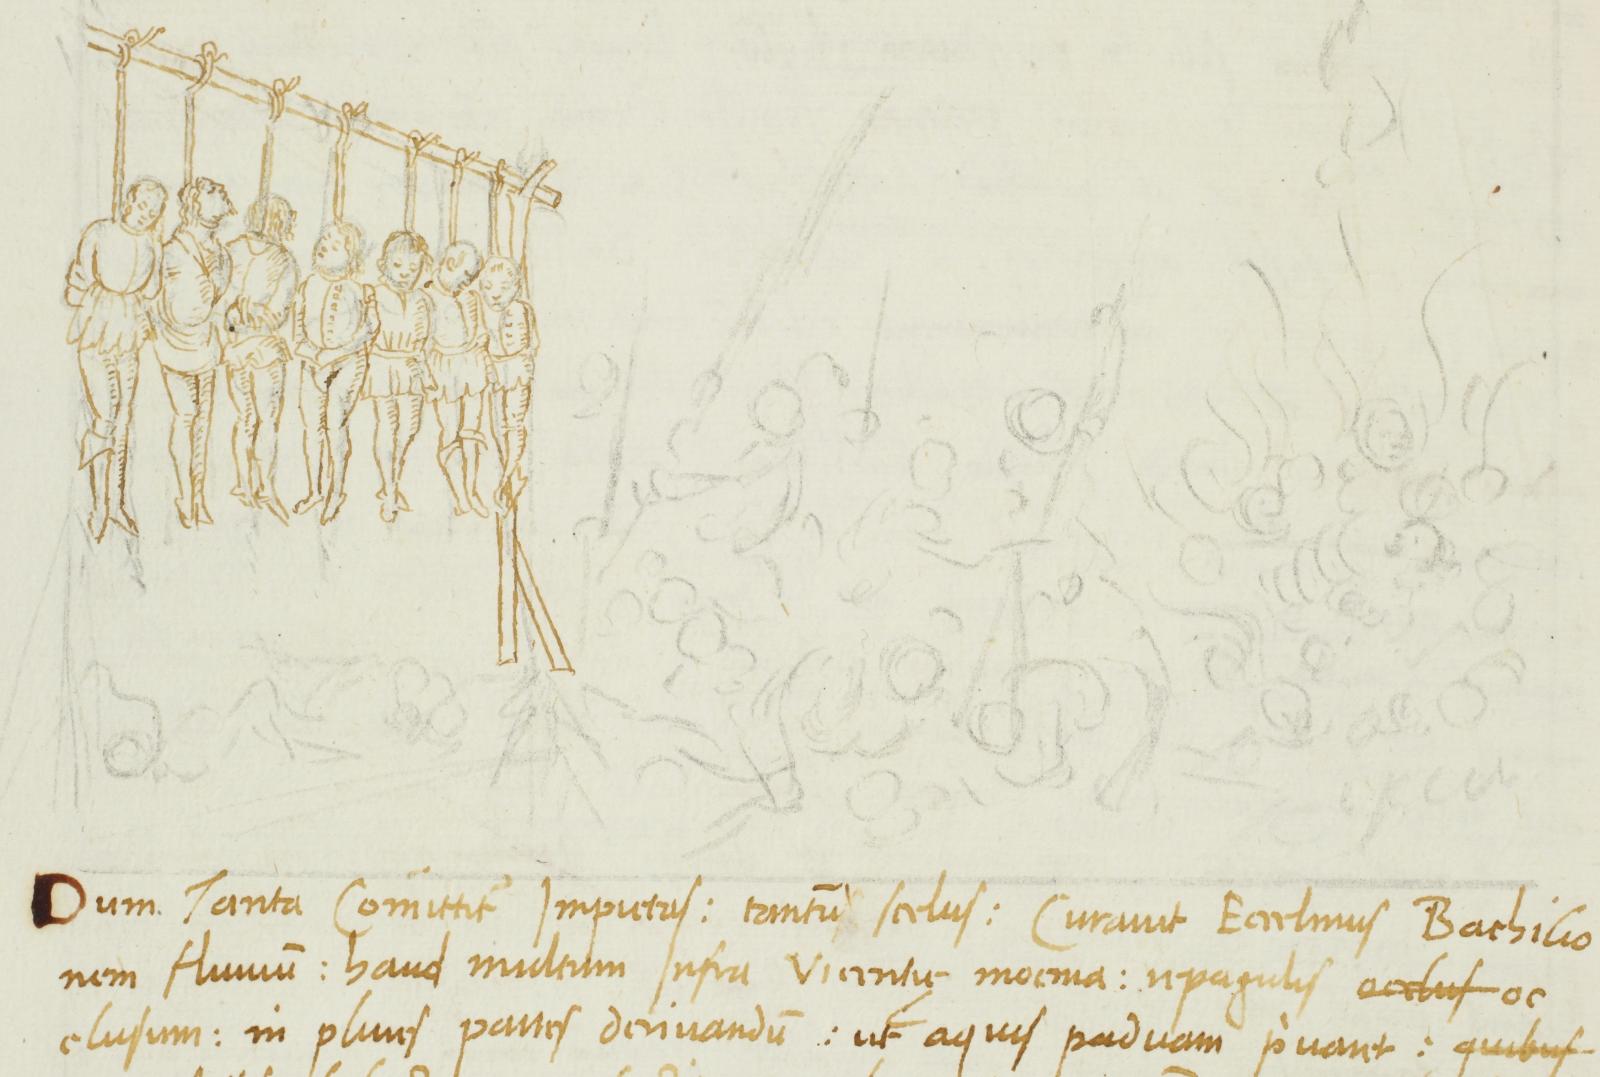 Dum Tanta Comittit Impietas: tantū scelus: Curavit Ecelinus Bachilio
nem fluviū: haud multum Infra Vicentie moenia: repagulis occlus oc
clusum: in plures partes derivandū: ut aquis paduam p̄varet: quibus